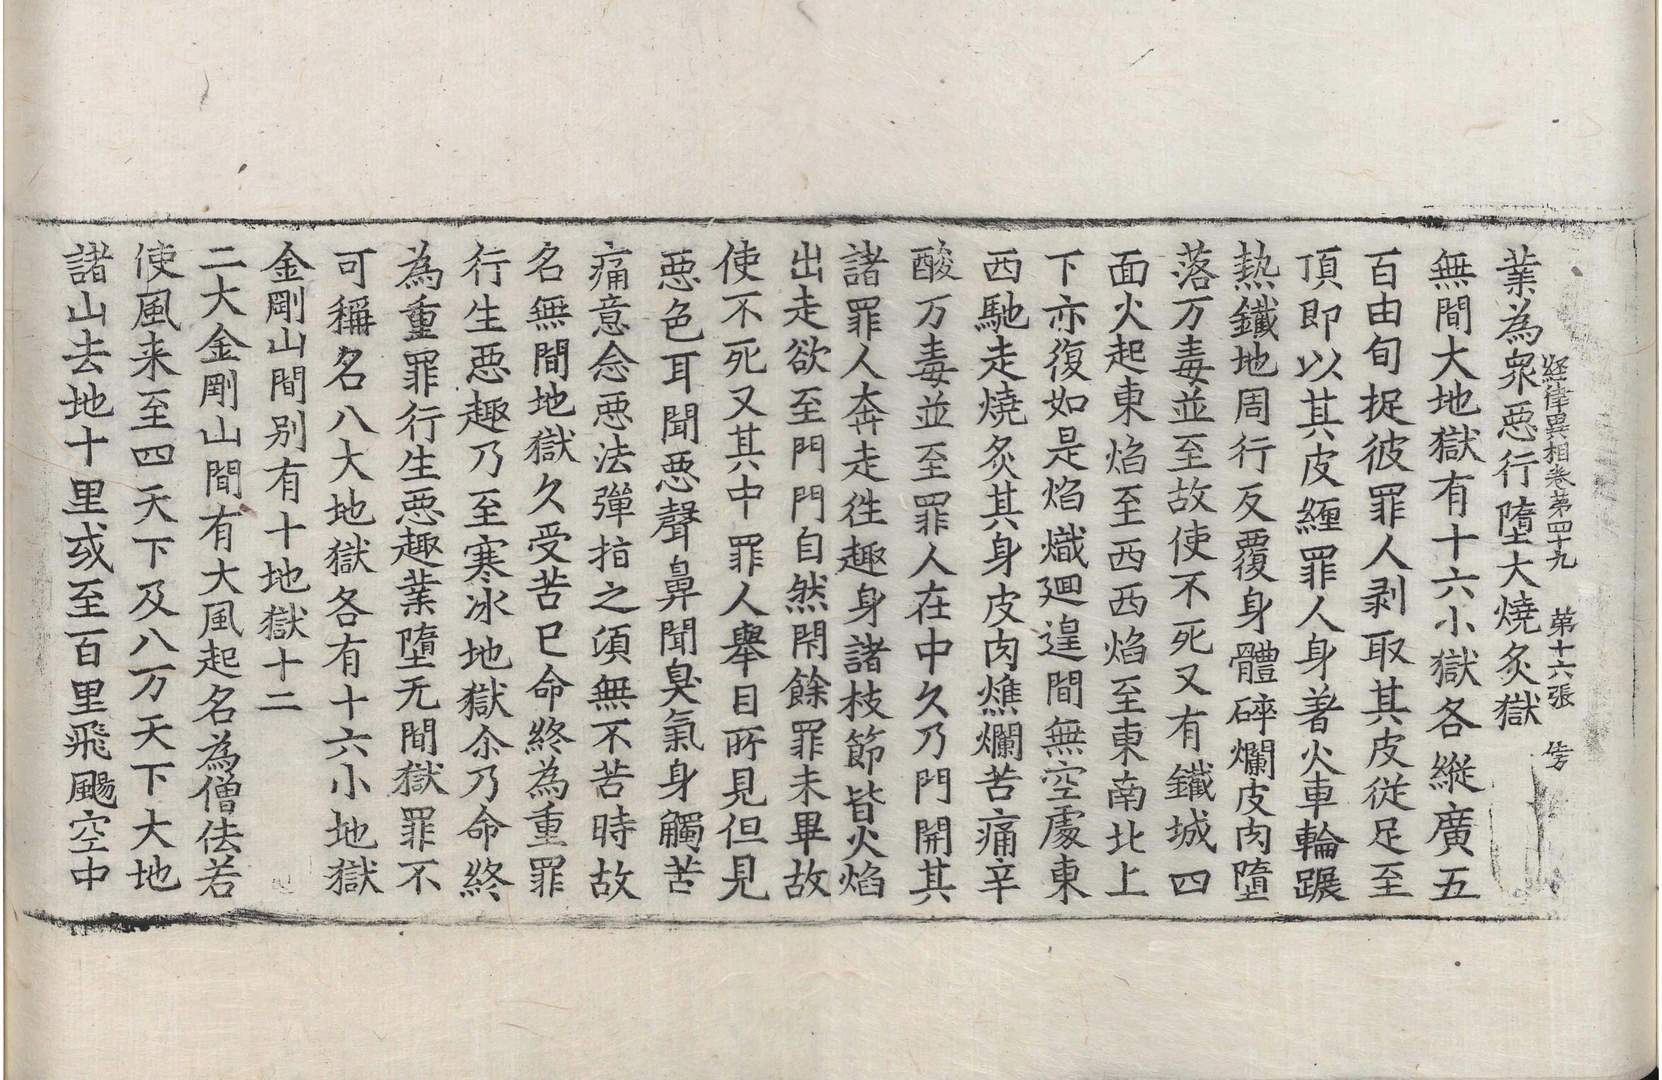 經律異相卷第四十九　第十六張　傍
業為衆惡行墮大燒炙獄
無間大地獄有十六小獄各縱廣五
百由旬捉彼罪人剥取其皮從足至
頂即以其皮纏罪人身著火車輪蹍
熱鐵地周行反覆身體碎爛皮肉墮
落万毒並至故使不死又有鐵城四
面火起東焰至西西焰至東南北上
下亦復如是焰熾迴遑間無空處東
西馳走燒炙其身皮肉燋爛苦痛辛
酸万毒並至罪人在中久乃門開其
諸罪人奔走往趣身諸枝節皆火焰
出走欲至門門自然閇餘罪未畢故
使不死又其中罪人舉目所見但見
惡色耳聞惡聲鼻聞臭氣身觸苦
痛意念惡法彈指之須無不苦時故
名無間地獄久受苦已命終為重罪
行生惡趣乃至寒冰地獄尒乃命終
為重罪行生惡趣業墮无間獄罪不
可稱名八大地獄各有十六小地獄
金剛山間別有十地獄十二
二大金剛山間有大風起名為僧佉若
使風来至四天下及八万天下大地
諸山去地十里或至百里飛颺空中